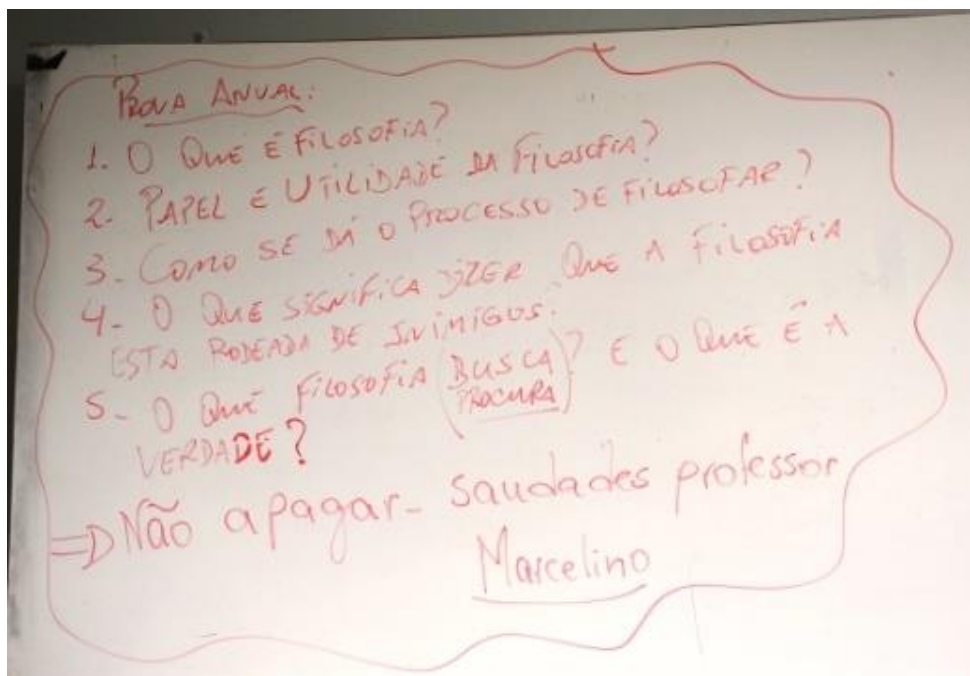 PROVA ANUAL:
1. O QUE É FILOSOFIA?
2. PAPEL E UTILIDADE DA FILOSOFIA?
3- COMO SE DÁ O PROCESSO DE FILOSOFAR?
4- O QUE SIGNIFICA DIZER QUE A FILOSOFIA
ESTA RODEADA DE INIMIGOS.
5- O QUE FILOSOFIA (BUSCA
PROCURA)? E O QUE É A
VERDADE?
=> Não apagar- saudades professor
Marcelino